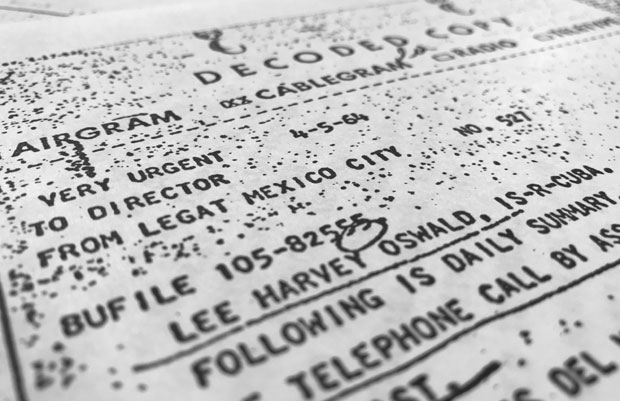 DECODED COPY
AIRGRAM CABLEGRAM RADIO
VERY URGENT 4-5-64
TO DIRECTOR NO. 527
FROM LEGAT MEXICO CITY
BUFILE 105-82555
LEE HARVEY OSWALD, IS-R-CUBA.
FOLLOWING IS DAILY SUMMARY.
TELEPHONE CALL BY
DEL